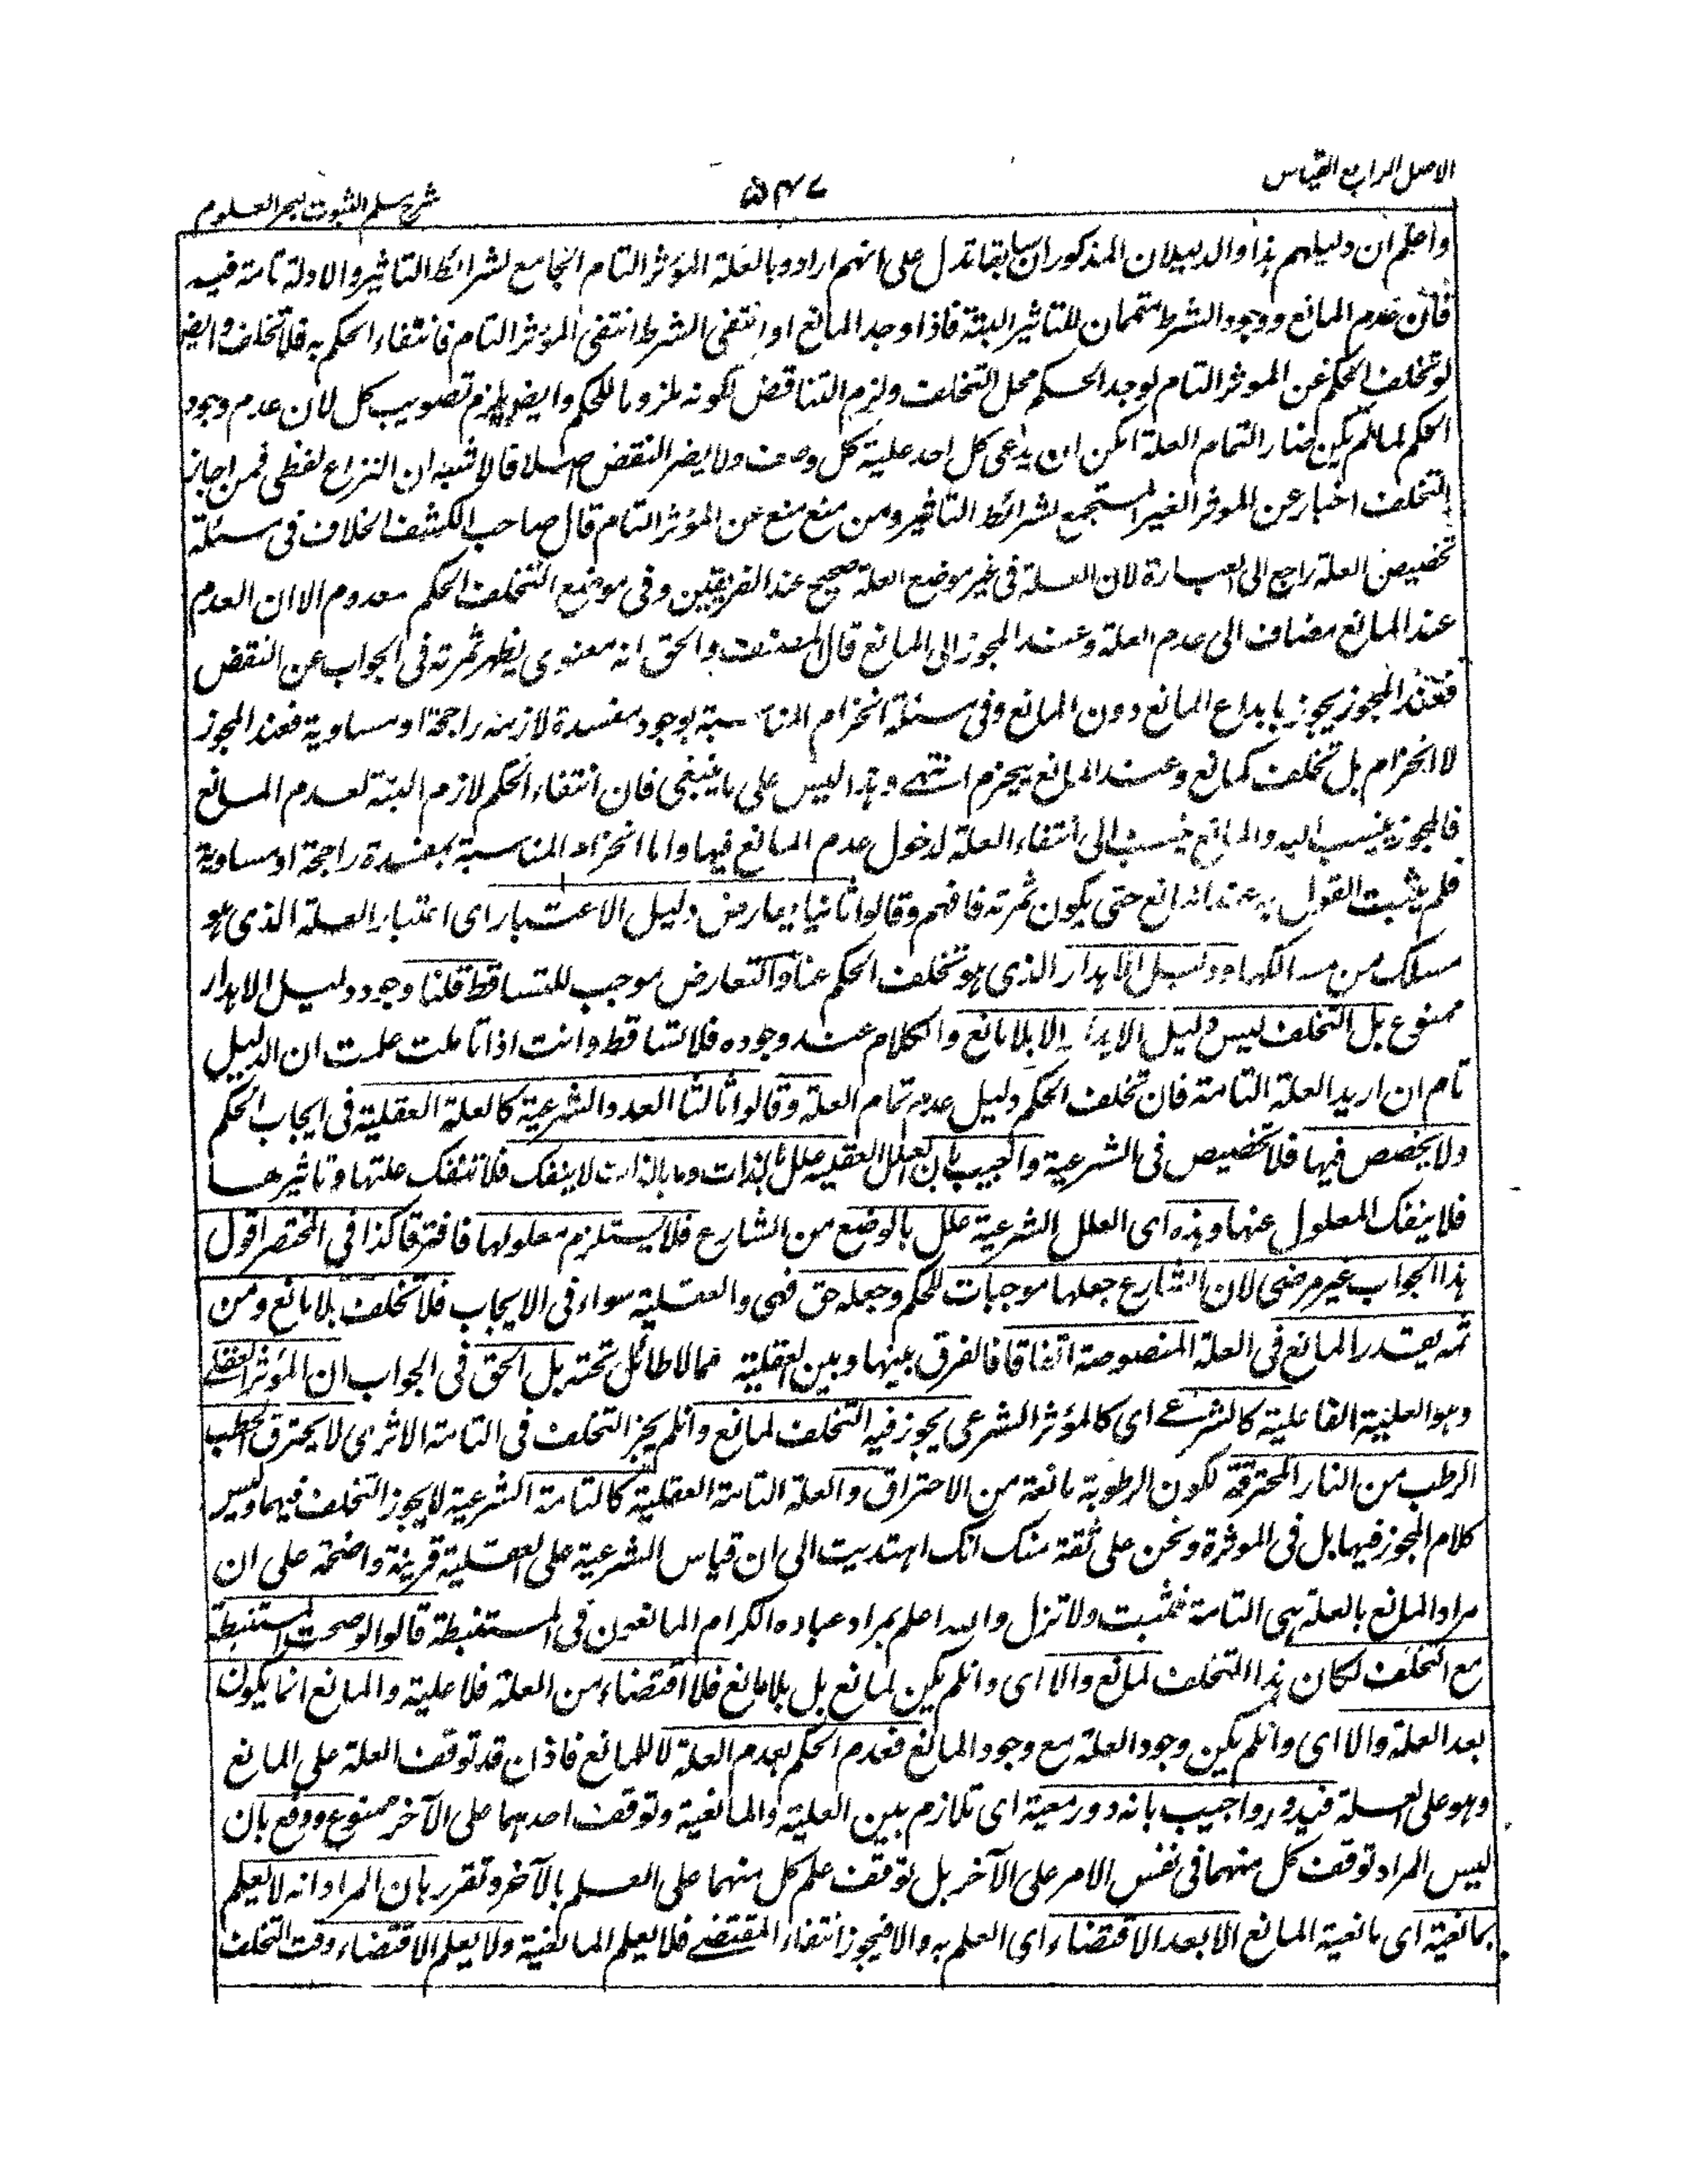 الاصل الرابع القياس
۵۴۷
شرح مسلم الثبوت لبحر العلوم
واعلم ان دليلهم هذا والدليلان المذكوران سابقا تدل على انهم ارادوا بالعلة المؤثر التام الجامع لشرائط التاثير والادلة تامة فيه
فان عدم المانع ووجود الشرط متممان للتاثير البتة فاذا وجد المانع او انتفى الشرط انتفى المؤثر التام فانتفاء الحكم به فلا تخلف وايضا
لو تخلف الحكم عن الموثر التام لوجد الحكم محل التخلف ولزم التناقض لكونه ملزوما للحكم وايض يلزم تصويب كل لان عدم وجود
الحكم لما لم يكن ضارا لتمام العلة امكن ان يدعى كل احد علية كل وصف ولا يضر النقض اصلا فالاشبه ان النزاع لفظى فمن اجاز
التخلف اخبار عن الموثر الغير المستجمع لشرائط التاثير ومن منع منع عن المؤثر التام قال صاحب الكشف الخلاف فى مسئلة
تخصيص العلة راجع الى العبارة لان العلة فى غير موضع العلة صحيح عند الفريقين وفى موضع التخلف الحكم معدوم الا ان العدم
عند المانع مضاف الى عدم العلة وعند المجوز الى المانع قال المصنف والحق انه معنوى يظهر ثمرته فى الجواب عن النقض
فعند المجوز يجوز بابداع المانع دون المانع وفى مسئلة انخزام المناسبة بوجود مفسدة لازمة راجحة او مساوية فعند المجوز
لا انخزام بل تخلف لمانع وعند المانع ينخزم انتهے وهذا ليس على ما ينبغى فان انتفاء الحكم لازم البتة لعدم المانع
فالمجوز ينسب اليه والمانع ينسب الى انتفاء العلة لدخول عدم المانع فيها واما انخزام المناسبة بمفسدة راجحة او مساوية
فلم يثبت القول به عند المانع حتى يكون ثمرته فافهم وقالوا ثانيا يعارض دليل الاعتبار اى اعتبار العلة الذى هو
مسلك من مسالكها ودليل الاهدار الذى هو تخلف الحكم عنها والتعارض موجب للتساقط قلنا وجود دليل الاهدار
ممنوع بل التخلف ليس دليل الاهدار الا بلا مانع والكلام عند وجوده فلا تساقط وانت اذا تاملت علمت ان الدليل
تام ان اريد العلة التامة فان تخلف الحكم دليل عدم تمام العلة وقالوا ثالثا العلة الشرعية كالعلة العقلية فى ايجاب الحكم
ولا يخصص فيها فلا تخصيص فى الشرعية واجيب بان العلل العقلية علل بالذات وما بالذات لا ينفك فلا تنفك علتها وتاثيرها
فلا ينفك المعلول عنها وهذه اى العلل الشرعية علل بالوضع من الشارع فلا يستلزم معلولها فافترقا كذا فى المختصر اقول
هذا الجواب غير مرضى لان الشارع جعلها موجبات للحكم وجعله حق فهى والعقلية سواء فى الايجاب فلا تخلف بلا مانع ومن
ثمه يقدر المانع فى العلة المنصوصة اتفاقا فالفرق بينها وبين العقلية مما لا طائل تحته بل الحق فى الجواب ان المؤثر العقلے
وهو العلية الفاعلية كالشرعے اى كالمؤثر الشرعى يجوز فيه التخلف لمانع وان لم يجز التخلف فى التامة الا ترى لا يحترق الحطب
الرطب من النار المحرقة لكون الرطوبة مانعة من الاحتراق والعلة التامة العقلية كالتامة الشرعية لا يجوز التخلف فيهما وليس
كلام المجوز فيها بل فى الموثرة ونحن على ثقة منك انك اهتديت الى ان قياس الشرعية على العقلية قرينة واضحة على ان
مراد المانع بالعلة هى التامة فتثبت ولا تزل والله اعلم بمراد عباده الكرام المانعون فى المستنبطة قالوا لو صحت المستنبطة
مع التخلف لكان هذا التخلف لمانع والا اى وان لم يكن لمانع بل بلا مانع فلا اقتضاء من العلة فلا علية والمانع انما يكون
بعد العلة والا اى وان لم يكن وجود العلة مع وجود المانع فعدم الحكم لعدم العلة لا للمانع فاذن قد توقف العلة على المانع
وهو على العلة فيدور واجيب بانه دور معية اى تلازم بين العلية والمانعية وتوقف احدهما على الآخر ممنوع ودفع بان
ليس المراد توقف كل منهما فى نفس الامر على الآخر بل توقف علم كل منهما على العلم بالآخر وتقرر بان المراد انه لا يعلم
بمانعية اى مانعية المانع الا بعد الاقتضاء اى العلم به والا فيجوز انتفاء المقتضے فلا يعلم المانعية ولا يعلم الاقتضاء وقت التخلف